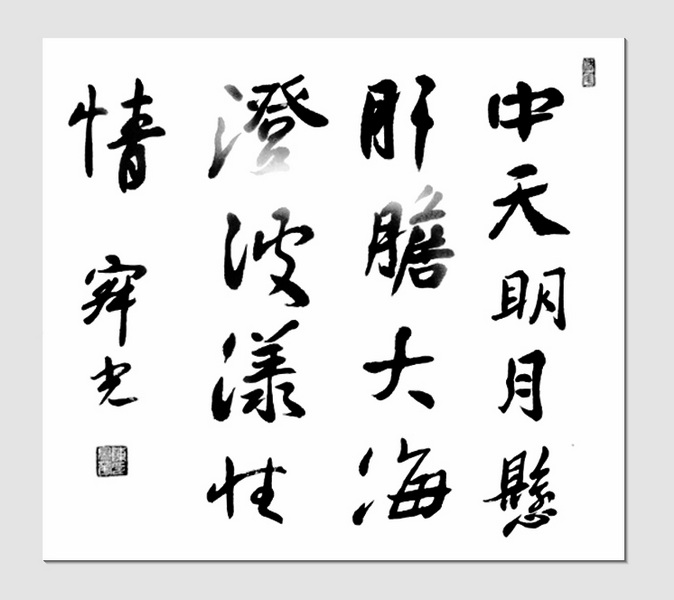 中天明月懸
肝膽大海
澄波漾性
情
霁光